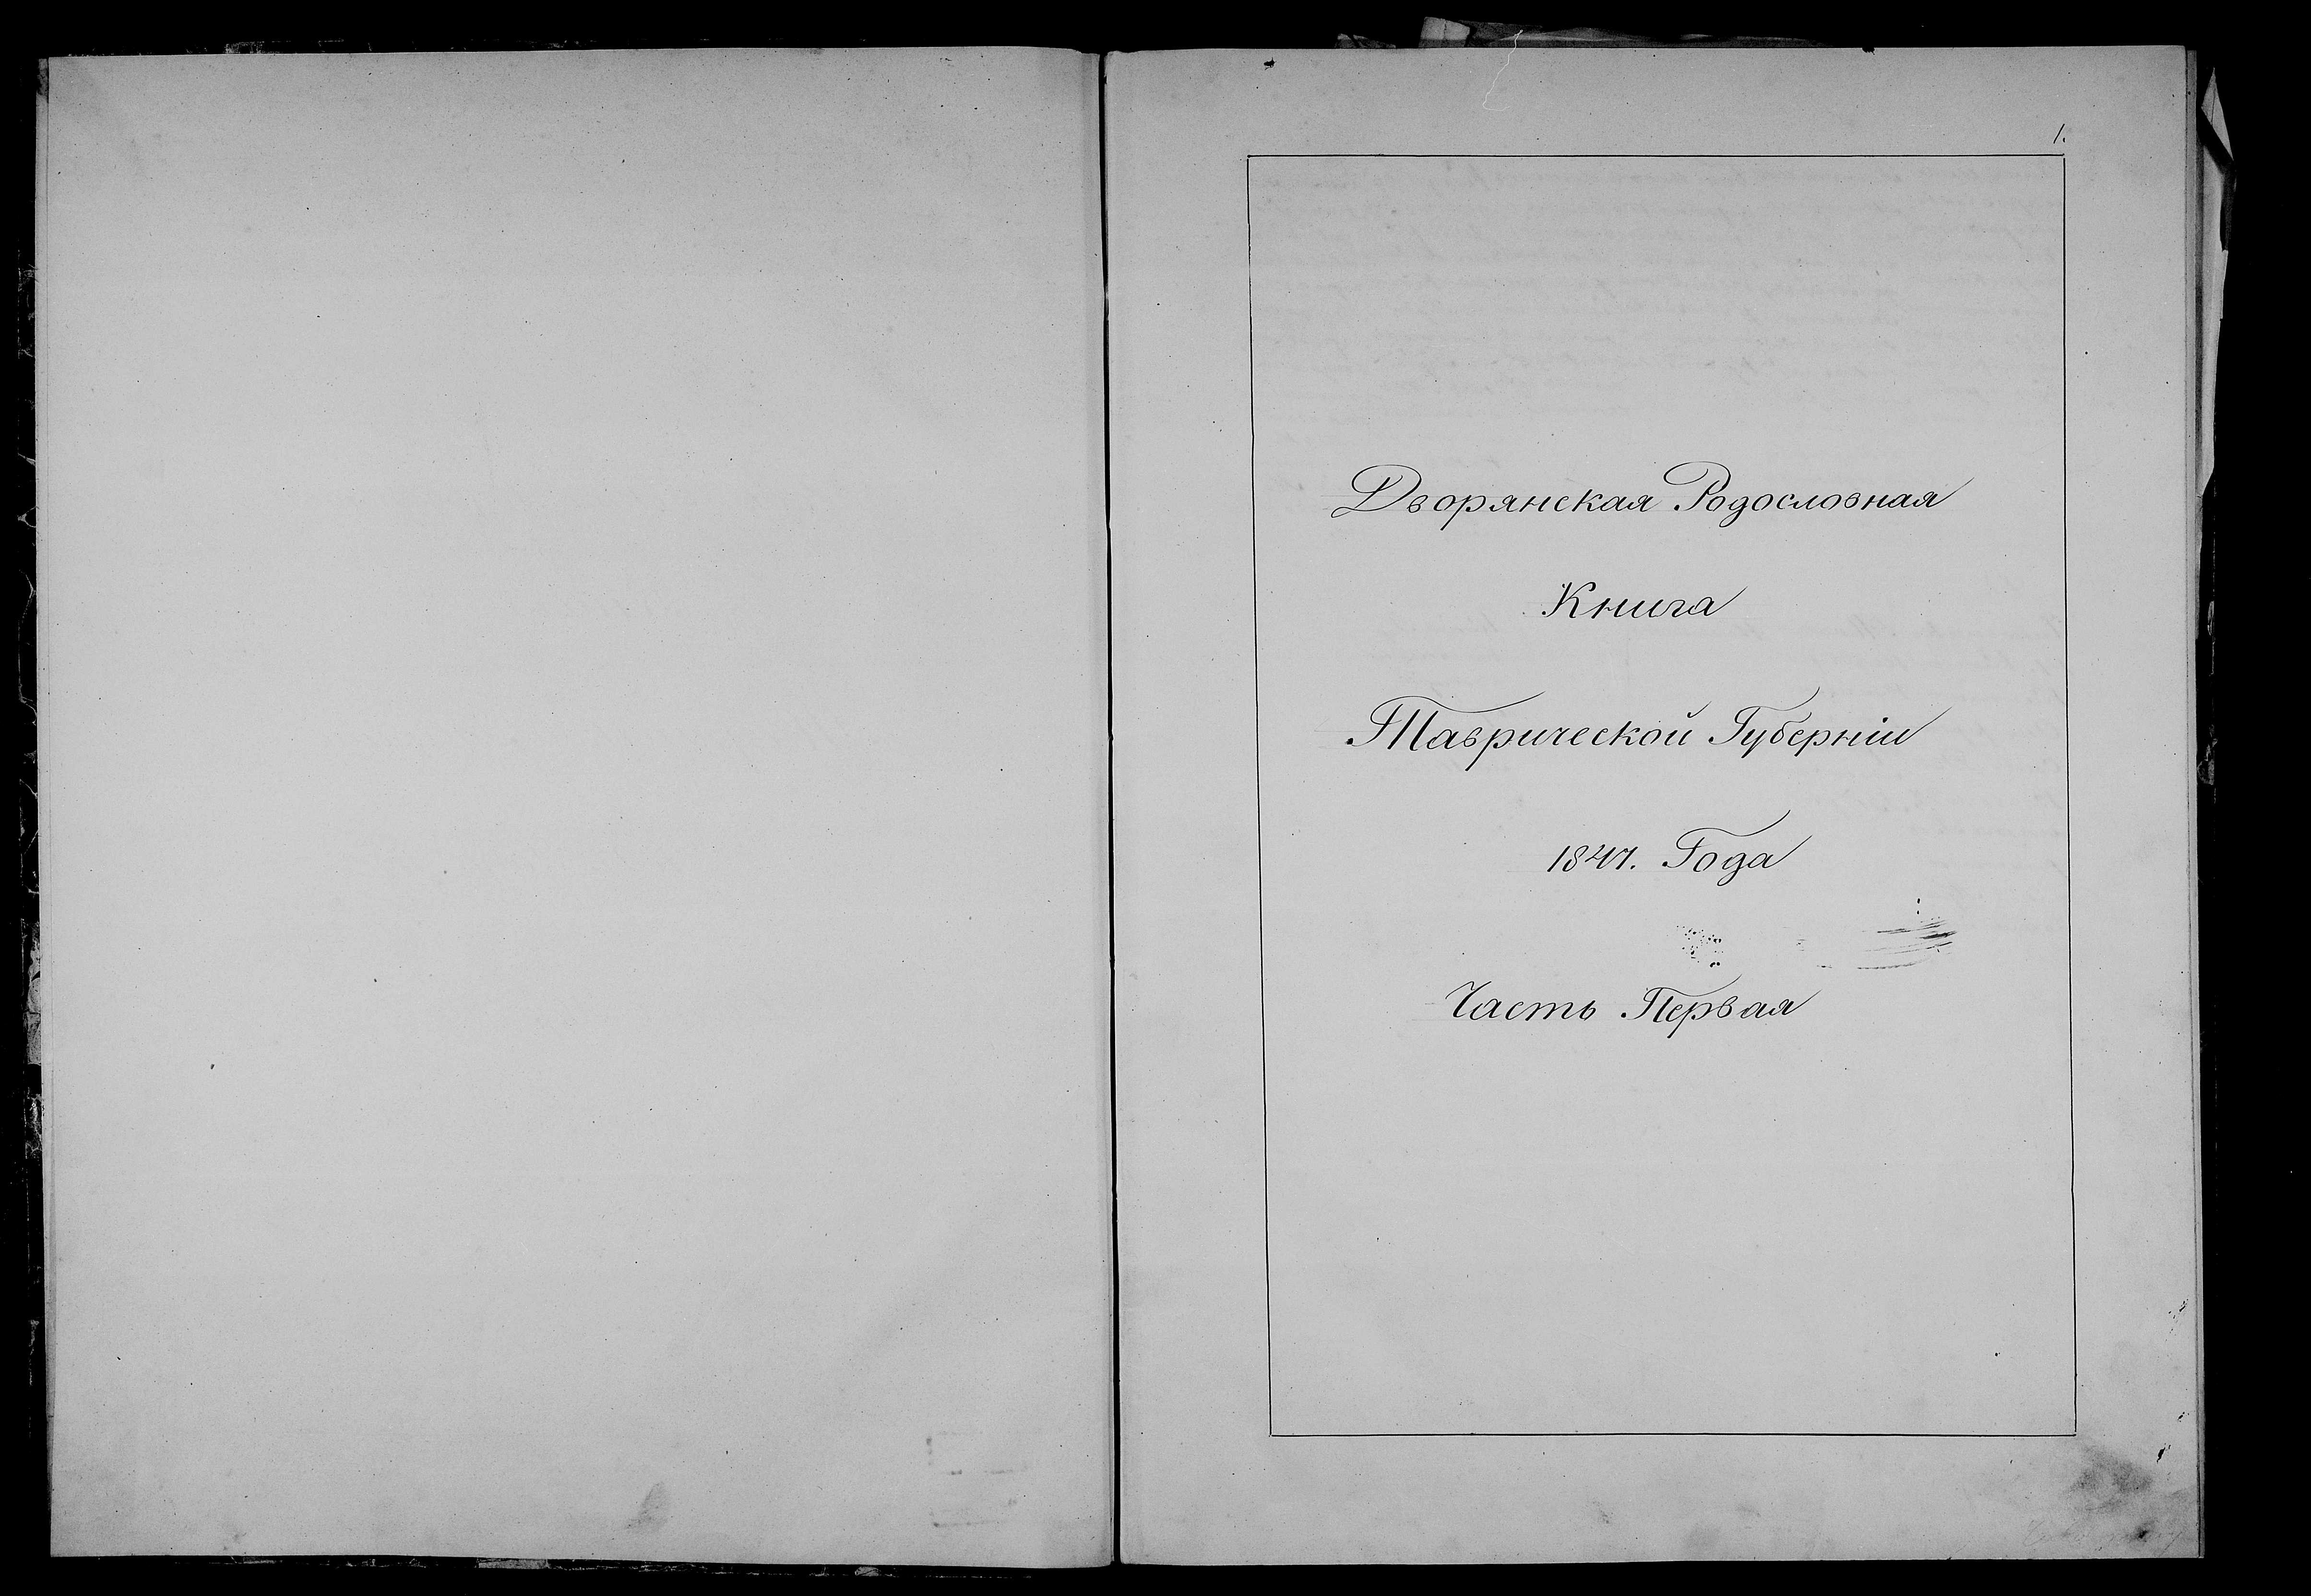 1.
Дворянская Родословная
Книга
Таврической Губерніи
1847. Года
Часть Первая